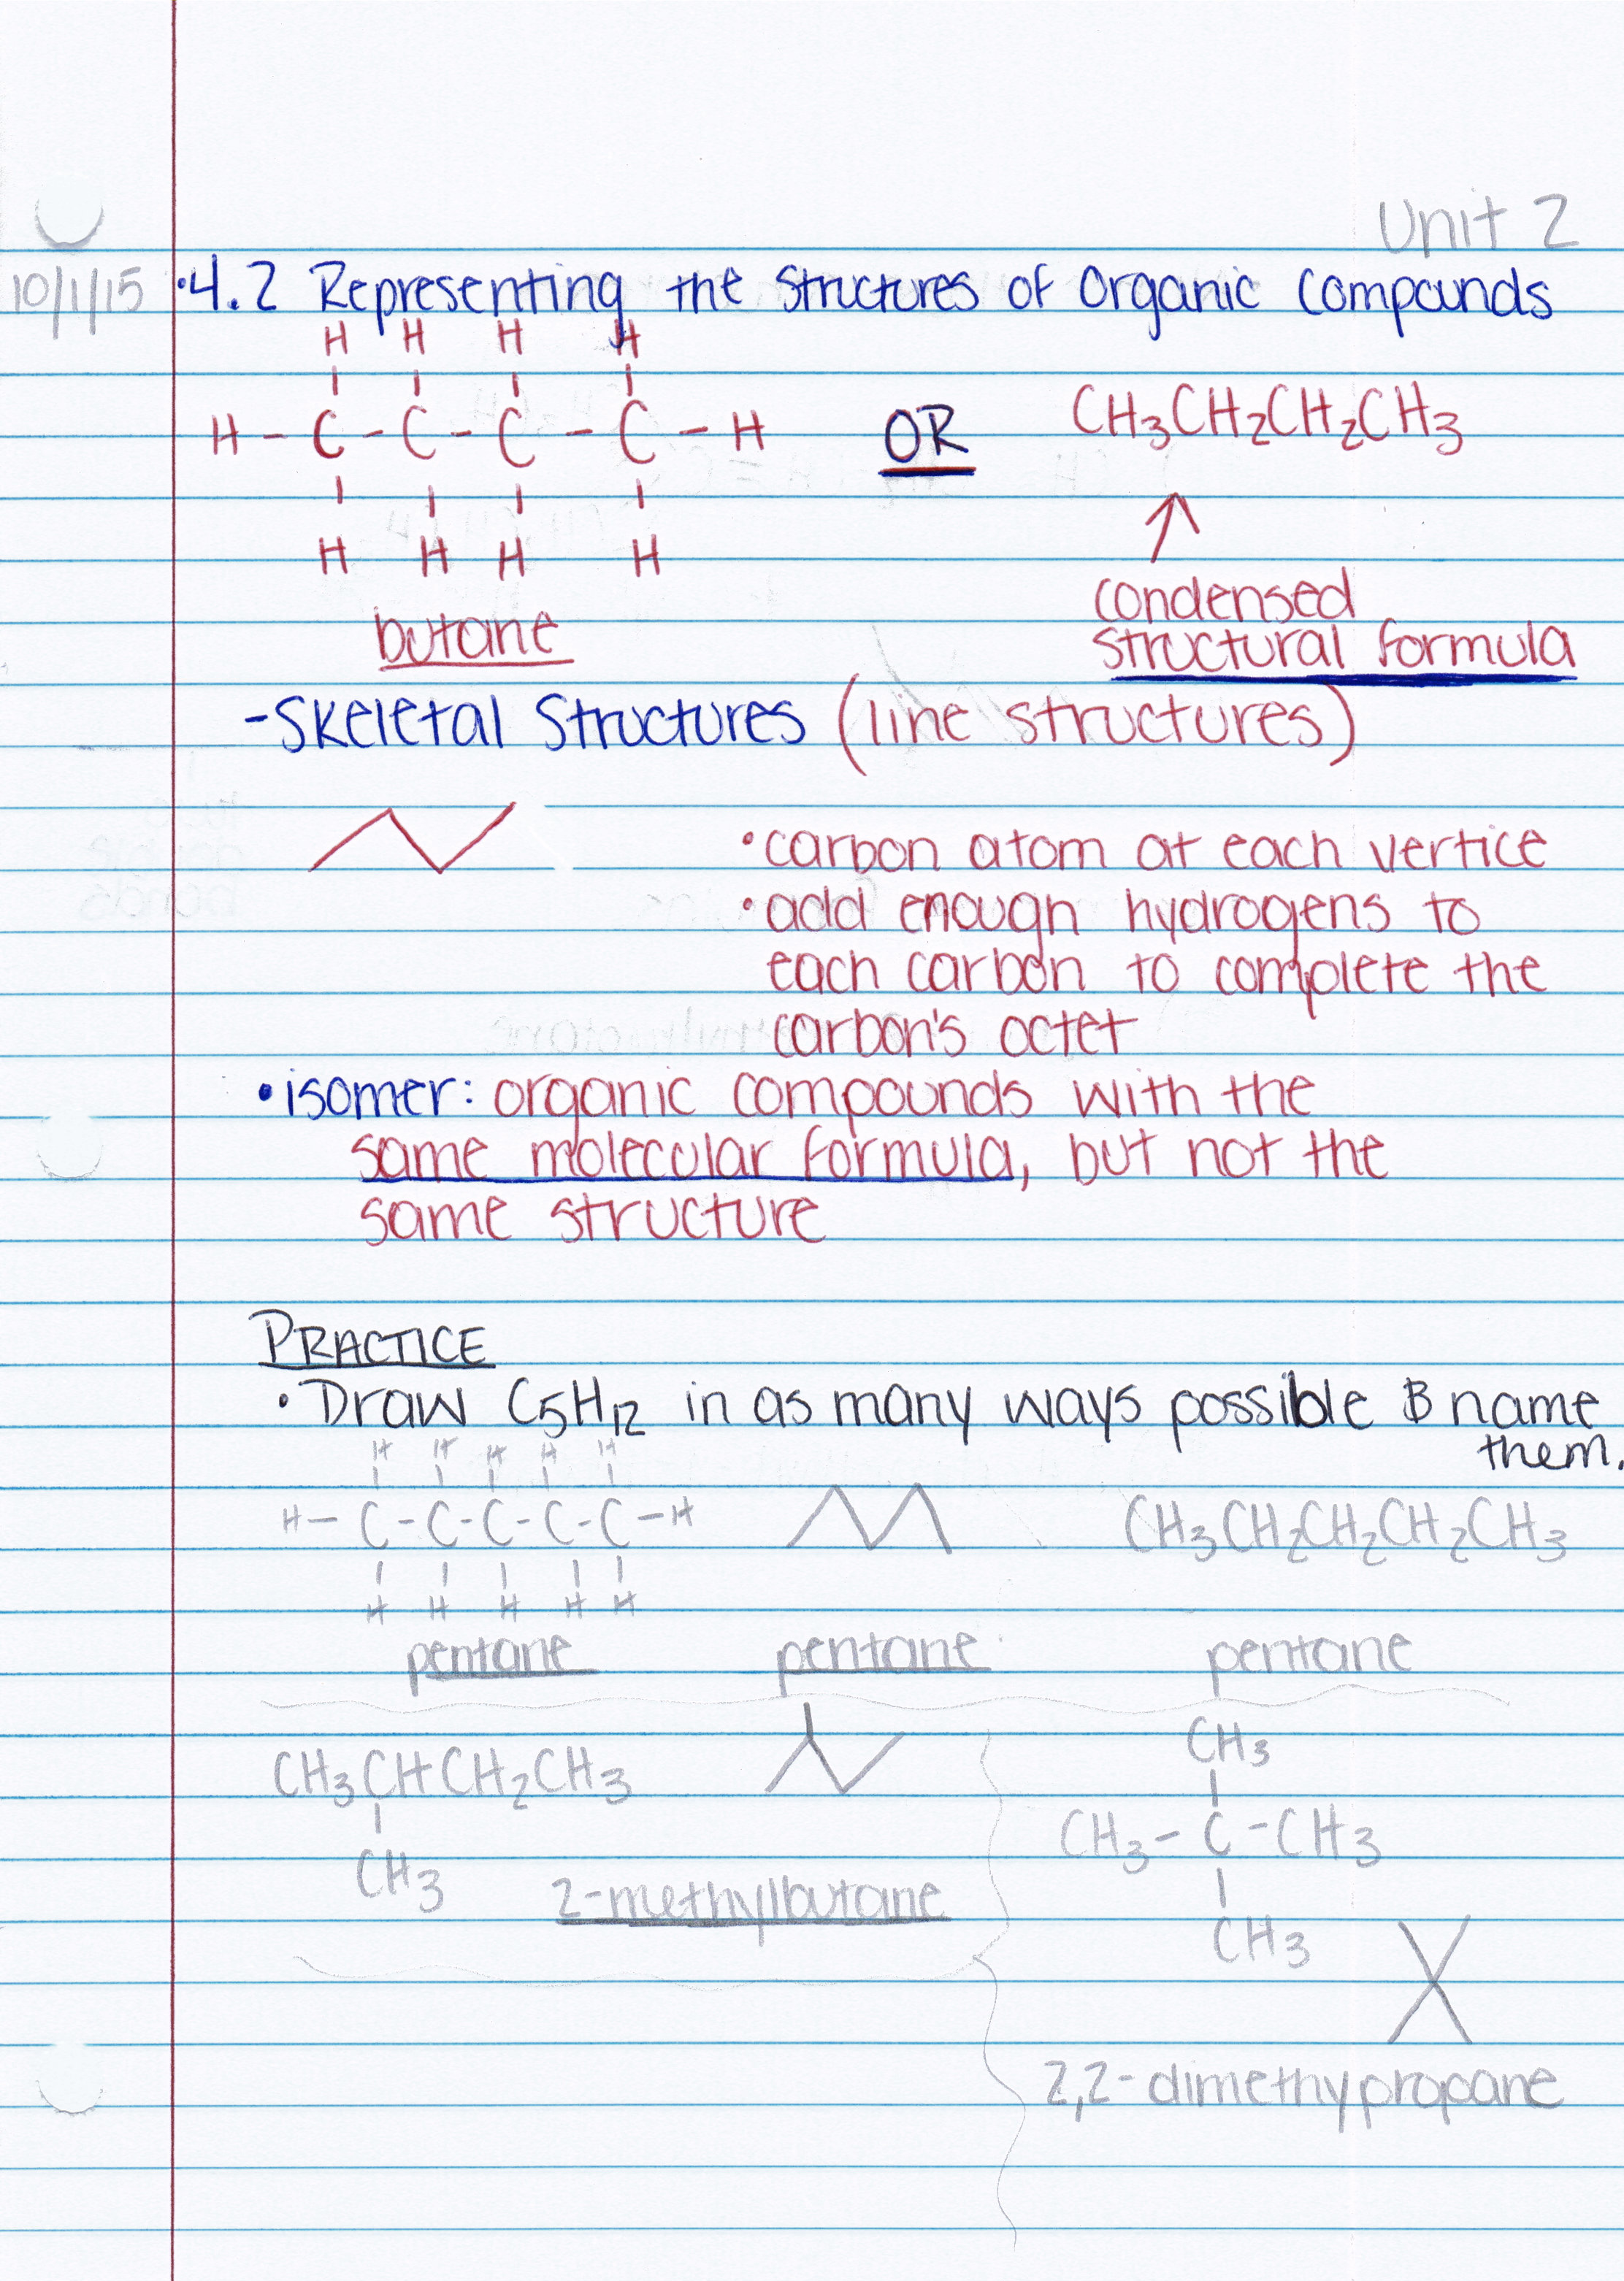 Unit 2
10/1/15 •4.2 Representing the Structures of Organic Compounds
H H H H
H - C - C - C - C - H OR CH3CH2CH2CH3
H H H H
butane
condensed
structural formula
-Skeletal Structures (line structures)
•carbon atom at each vertice
•add enough hydrogens to
each carbon to complete the
carbon's octet
•isomer: organic compounds with the
same molecular formula, but not the
same structure
PRACTICE
•Draw C5H12 in as many ways possible & name
them.
H H H H H
H-C-C-C-C-C-H CH3CH2CH2CH2CH3
H H H H H
pentane pentane pentane
CH3CHCH2CH3
CH3
2-methylbutane
CH3
CH3-C-CH3
CH3
2,2-dimethypropane